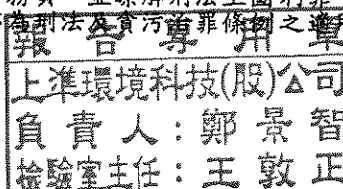 為刑法及貪污治罪條例之違
報告專用章
上準環境科技(股)公司
負責人：鄭景智
檢驗室主任：王敦正